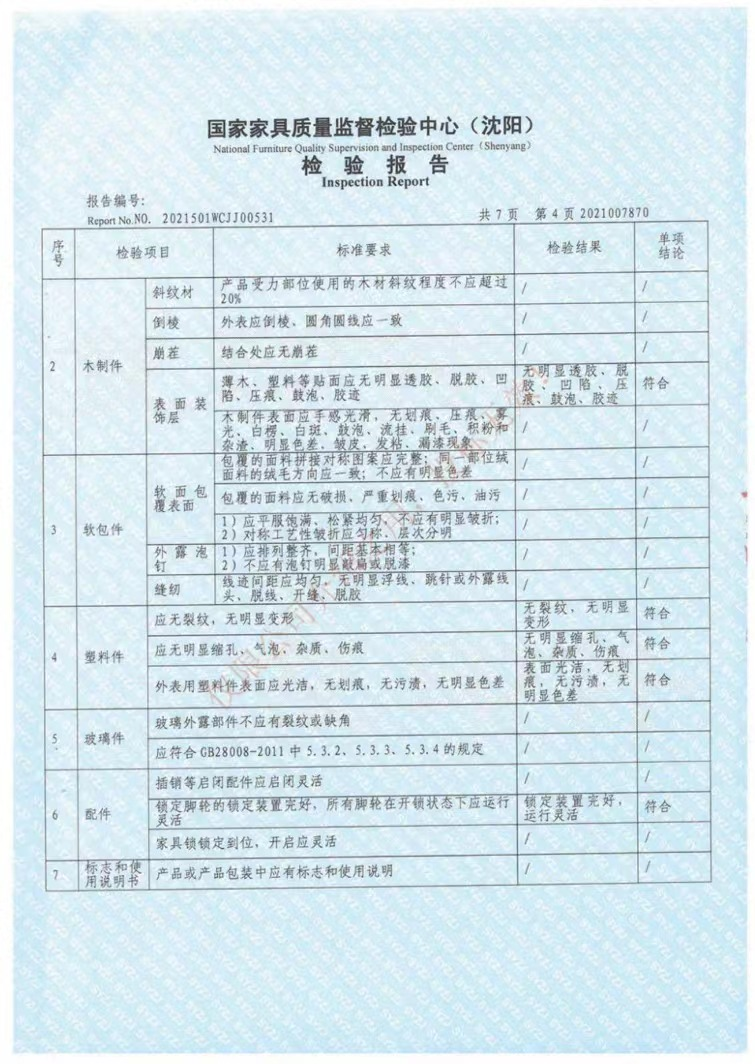 国家家具质量监督检验中心（沈阳）
National Furniture Quality Supervision and Inspection Center (Shenyang)
检 验 报 告
Inspection Report
报告编号:
Report No.NO. 2021501WCJJ00531 共 7 页 第 4 页 2021007870
序号 检验项目 标准要求 检验结果 单项结论
2 木制件
斜纹材 产品受力部位使用的木材斜纹程度不应超过
20% / /
倒棱 外表应倒棱、圆角圆线应一致 / /
崩茬 结合处应无崩茬 / /
表面装饰层
薄木、塑料等贴面应无明显透胶、脱胶、凹
陷、压痕、鼓泡、胶迹
无明显透胶、脱
胶、凹陷、压
痕、鼓泡、胶迹
符合
木制件表面应手感光滑，无划痕、压痕、雾
光、白楞、白斑、鼓泡、流挂、刷毛、积粉和
杂渣、明显色差、皱皮、发粘、漏漆现象 / /
3 软包件
软面包覆表面
包覆的面料拼接对称图案应完整；同一部位绒
面料的绒毛方向应一致；不应有明显色差 / /
包覆的面料应无破损、严重划痕、色污、油污 / /
1）应平服饱满、松紧均匀、不应有明显皱折；
2）对称工艺性皱折应匀称、层次分明 / /
外露泡钉
1）应排列整齐，间距基本相等；
2）不应有泡钉明显敲扁或脱漆 / /
缝纫
线迹间距应均匀，无明显浮线、跳针或外露线
头、脱线、开缝、脱胶 / /
4 塑料件
应无裂纹，无明显变形
无裂纹、无明显
变形
符合
应无明显缩孔、气泡、杂质、伤痕
无明显缩孔、气
泡、杂质、伤痕
符合
外表用塑料件表面应光洁，无划痕，无污渍，无明显色差
表面光洁，无划
痕，无污渍，无
明显色差
符合
5 玻璃件
玻璃外露部件不应有裂纹或缺角 / /
应符合GB28008-2011中5.3.2、5.3.3、5.3.4的规定 / /
6 配件
插销等启闭配件应启闭灵活 / /
锁定脚轮的锁定装置完好，所有脚轮在开锁状态下应运行
灵活
锁定装置完好，
运行灵活
符合
家具锁锁定到位，开启应灵活 / /
7 标志和使用说明书 产品或产品包装中应有标志和使用说明 / /